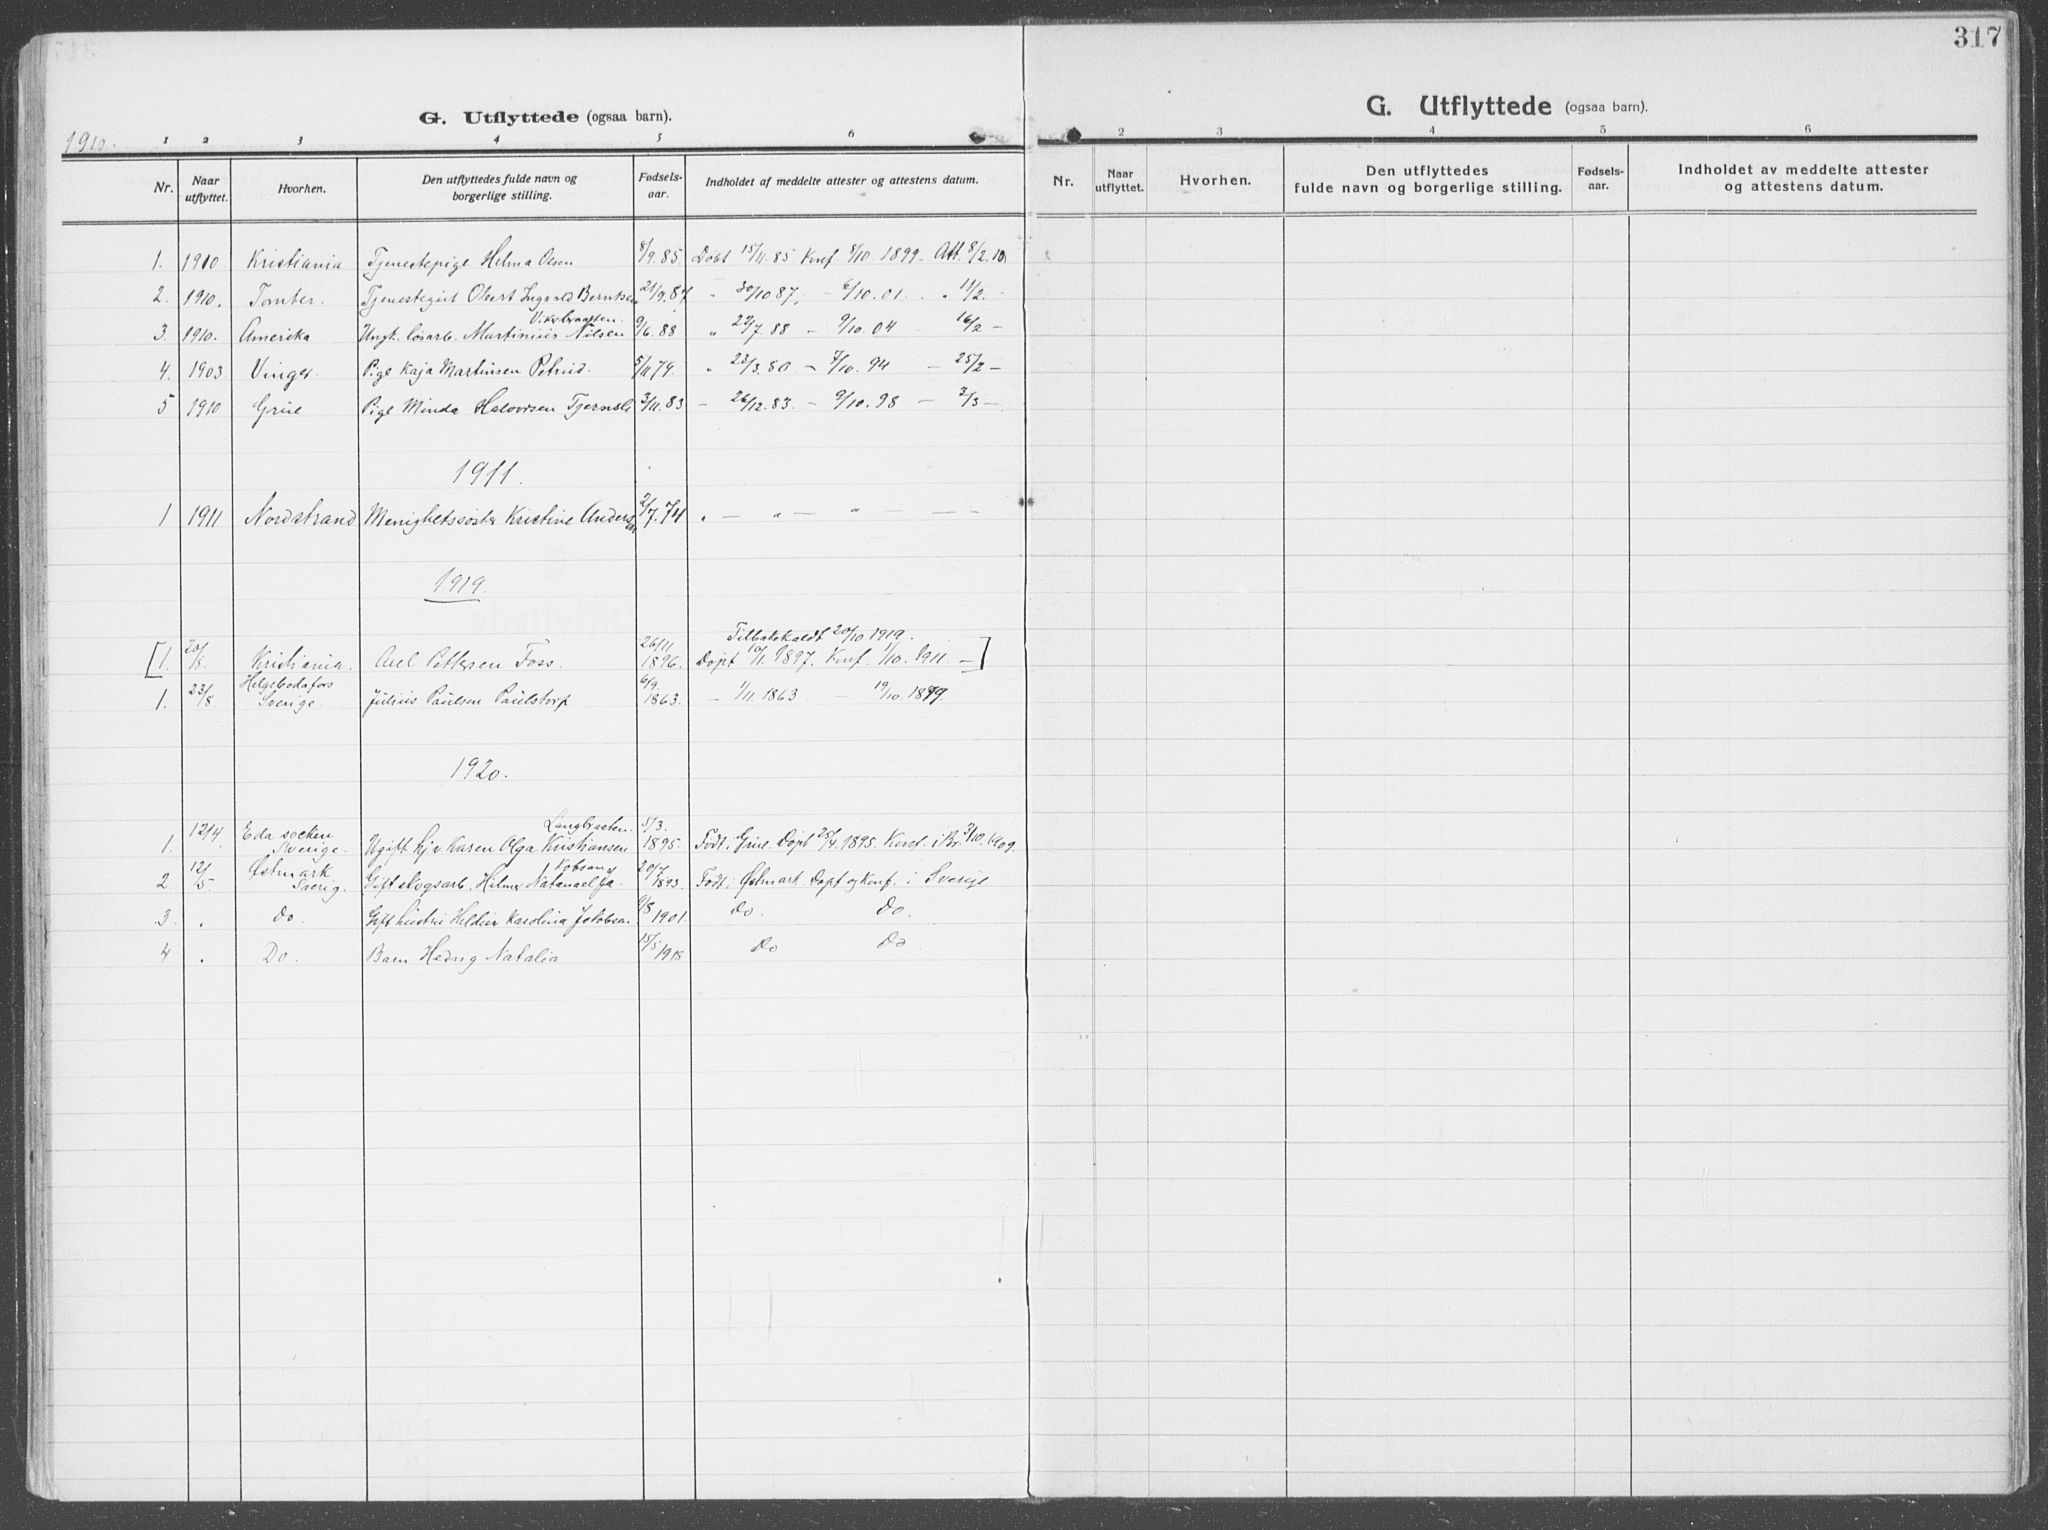 317
G. Utflyttede (ogsaa barn).
1910.
1 2 3 4 5 6
Nr. Naar utflyttet. Hvorhen. Den utflyttedes fulde navn og borgerlige stilling. Fødselsaar. Indholdet af meddelte attester og attestens datum.
1. 1910 Kristiania Tjenestepige Helma Olsen 8/9.85 Døbt 15/11.85 Konf 8/10.1899 - Att. 8/2.10
2. 1910. Tomter. Tjenestegut Olvert Ingvald Berntsen 21/9.87 " 30/10 87, - 6/10.01. . " 11/2 -
Viksbraaten.
3. 1910. Amerika Ungk. løsarb. Martinius Nilsen 9/6.88 " 22/7.88 - 9/10.04 - 16/2 -
4. 1903 Vinger. Pige Kaja Martinsen Petrud. 5/11 79. " 23/3.80 - 7/10.94 - 25/2 -
5 1910 Grue Pige Minda Halvorsen Tjernsli 3/11.83 - 26/12.83. - 9/10.98 - 2/3 -
1911.
1 1911 Nordstrand Menighetssøster Kristine Andersen 2/7.74 " - " - " - - -
1919.
Tilbakekaldt 20/10 1919.
[1. 20/8. Kristiania. Axel Pettersen Foss. 26/11 1896. Døpt 10/1.1897. Konf. 1/10.1911. - ]
1. 23/8 Helgebodafors Sverige. Julius Paulsen Paulstorp 6/9. 1863. - 1/11.1863 - 19/10.1879.
1920.
Langbraaten.
1. 12/4. Eda socken Sverige. Ugift Karen Olga Kristiansen 5/3. 1895. Født i Grue. Døpt 25/4.1895. Konf. i Br. 3/10.1909.
2. 12/5. Østmark Sverig. Gift skogsarb. Hilmer Natanael Jakobsen 20/7 1893. Født i Østmark. Døpt og Konf. i Sverige
3. " Do. Gift hustru Karolina Jakobsen. 9/8 1901. Do. Do.
4 " Do. Barn Hedvig Natalia 15/5 1918 Do Do
G. Utflyttede (ogsaa barn).
2 3 4 5 6
Nr. Naar utflyttet. Hvorhen. Den utflyttedes fulde navn og borgerlige stilling. Fødselsaar. Indholdet av meddelte attester og attestens datum.